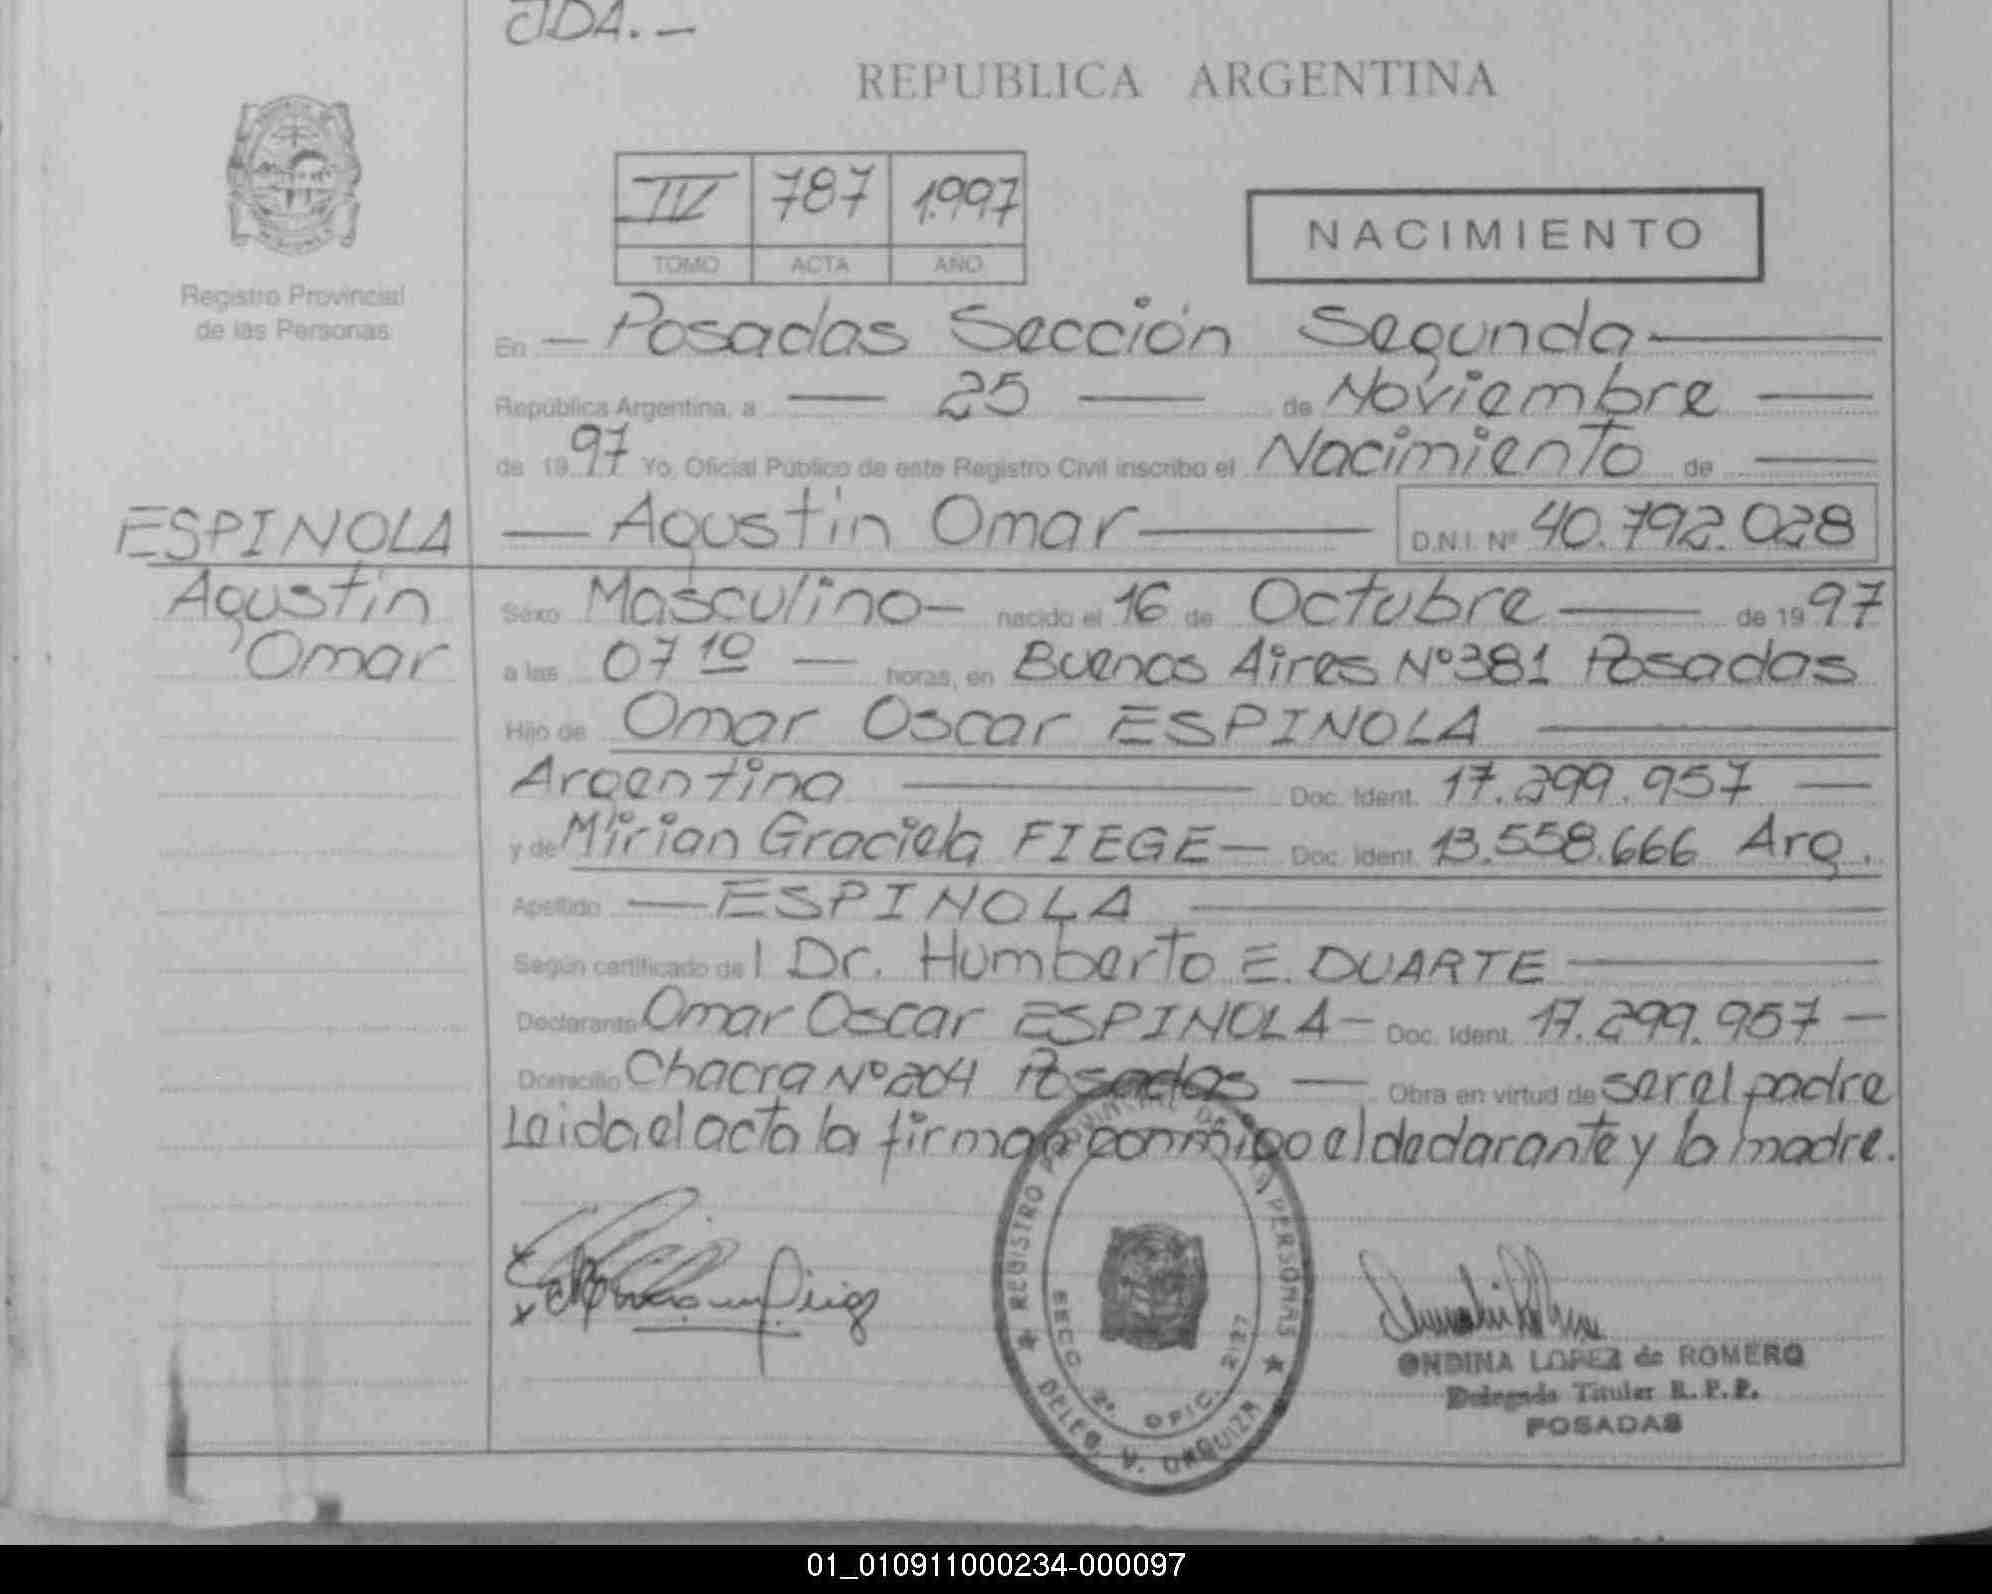 JDA. —
REPUBLICA ARGENTINA
IV 787 1.997
TOMO ACTA AÑO
NACIMIENTO
Registro Provincial
de las Personas
En — Posadas Sección Segunda —
República Argentina, a — 25 — de Noviembre —
de 19 97 Yo, Oficial Público de este Registro Civil inscribo el Nacimiento de —
ESPINOLA
Agustín
Omar
— Agustín Omar — D.N.I. Nº 40.792.028
Sexo Masculino — nacido el 16 de Octubre — de 19 97
a las 07 10 — horas, en Buenos Aires Nº 381 Posadas
Hijo de Omar Oscar ESPINOLA —
Argentino — Doc. Ident. 17.299.957 —
y de Mirian Graciela FIEGE — Doc. Ident. 13.558.666 Arg.
Apellido — ESPINOLA —
Según certificado de l Dr. Humberto E. DUARTE —
Declarante Omar Oscar ESPINOLA — Doc. Ident. 17.299.957 —
Domicilio Chacra Nº 204 Posadas — Obra en virtud de ser el padre
Leida el acta la firman conmigo el declarante y la madre.
REGISTRO PROVINCIAL DE LAS PERSONAS
SECC. 2ª. OFIC. 2127
DELEG. V. URQUIZA
ONDINA LOPEZ de ROMERO
Delegada Titular R. P. P.
POSADAS
01_010911000234-000097